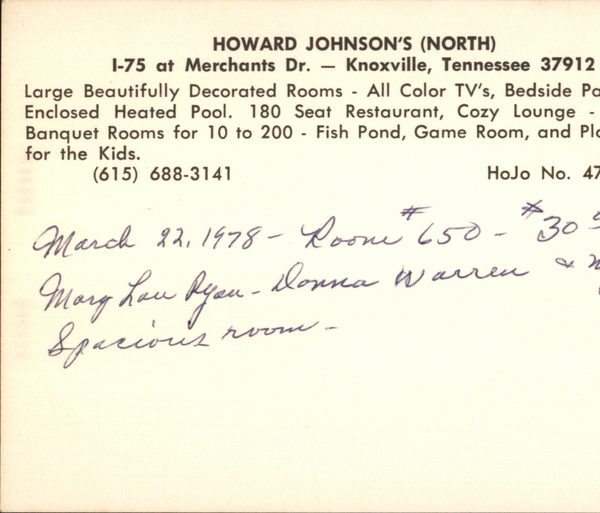 HOWARD JOHNSON'S (NORTH)
I-75 at Merchants Dr. — Knoxville, Tennessee 37912
Large Beautifully Decorated Rooms - All Color TV's, Bedside Pa
Enclosed Heated Pool. 180 Seat Restaurant, Cozy Lounge -
Banquet Rooms for 10 to 200 - Fish Pond, Game Room, and Pla
for the Kids.
(615) 688-3141 HoJo No. 47
March 22, 1978 - Room #650 - $30
Mary Lou Ryan - Donna Warren &
Spacious room -